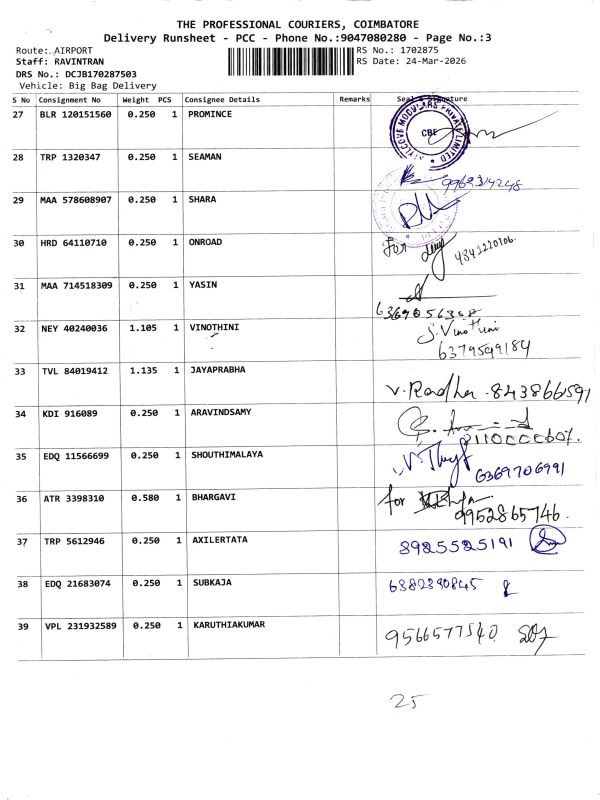 THE PROFESSIONAL COURIERS, COIMBATORE
Delivery Runsheet - PCC - Phone No.:9047080280 - Page No.:3
Route: AIRPORT RS No.: 1702875
Staff: RAVINTRAN RS Date: 24-Mar-2026
DRS No.: DCJB170287503
Vehicle: Big Bag Delivery
S No Consignment No Weight PCS Consignee Details Remarks Seal & Signature
27 BLR 120151560 0.250 1 PROMINCE CBE
28 TRP 1320347 0.250 1 SEAMAN
29 MAA 578608907 0.250 1 SHARA
30 HRD 64110710 0.250 1 ONROAD for
31 MAA 714518309 0.250 1 YASIN
32 NEY 40240036 1.105 1 VINOTHINI S. Vinothini
6379599184
33 TVL 84019412 1.135 1 JAYAPRABHA V. Radha . 843866591
34 KDI 916089 0.250 1 ARAVINDSAMY
35 EDQ 11566699 0.250 1 SHOUTHIMALAYA 6369706991
36 ATR 3398310 0.580 1 BHARGAVI for
9952865746.
37 TRP 5612946 0.250 1 AXILERTATA 8925525191
38 EDQ 21683074 0.250 1 SUBKAJA 6382390845
39 VPL 231932589 0.250 1 KARUTHIAKUMAR 9566577540
25